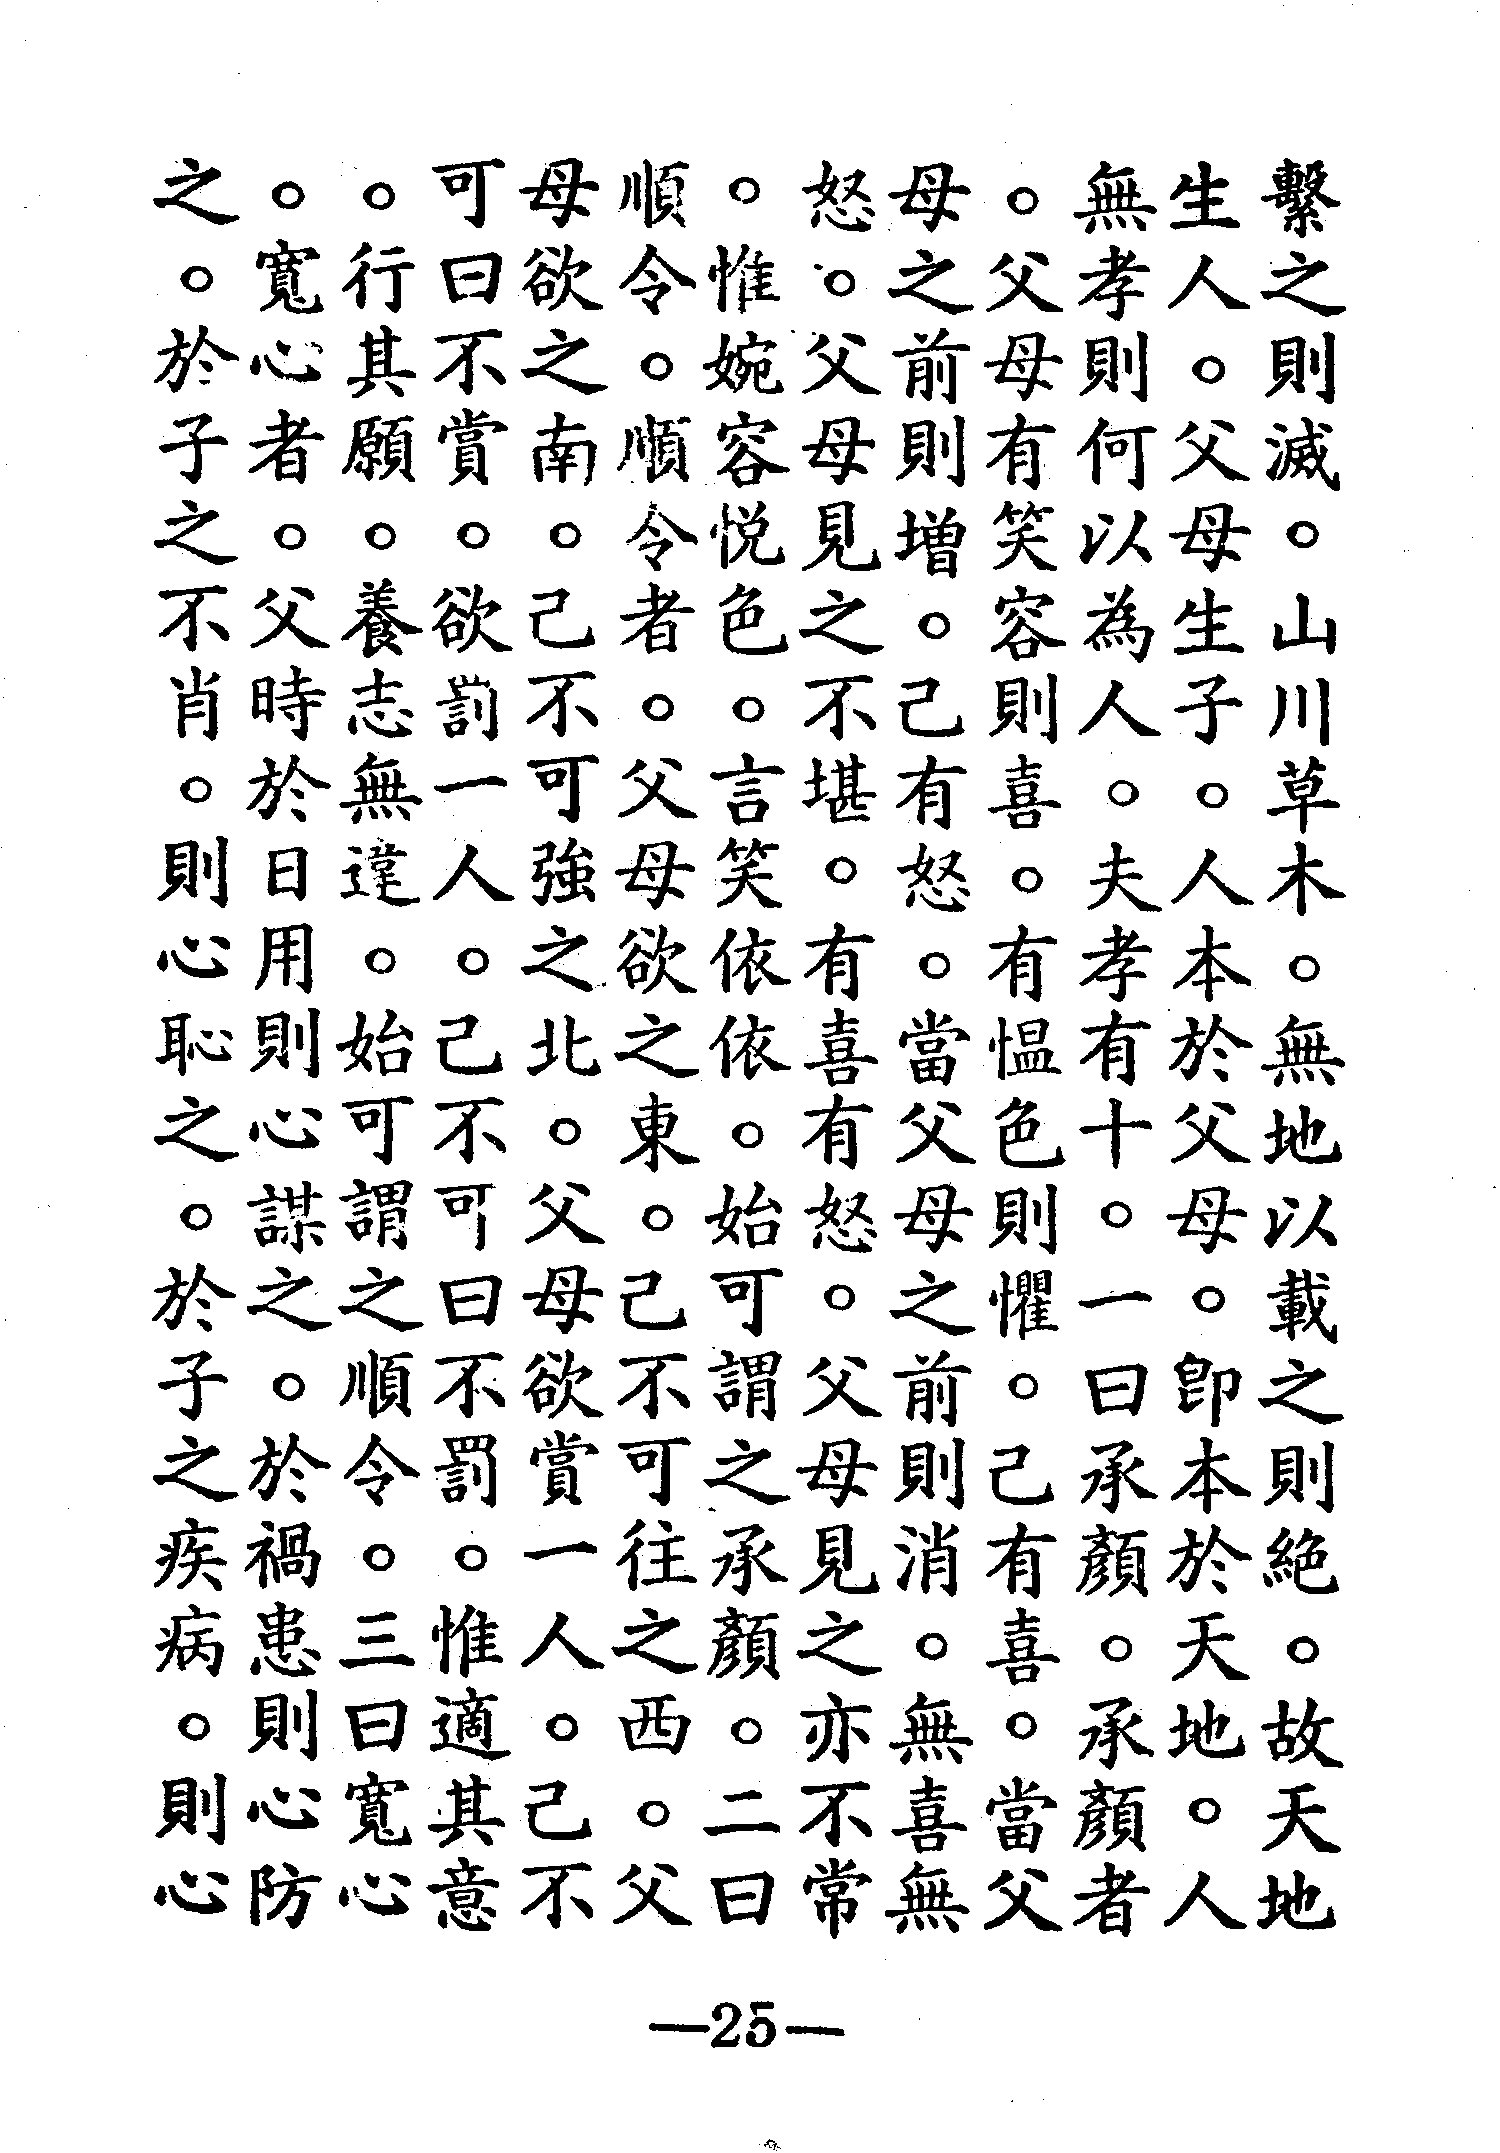 繫之則滅。山川草木。無地以載之則絕。故天地
生人。父母生子。人本於父母。卽本於天地。人
無孝則何以為人。夫孝有十。一曰承顏。承顏者
。父母有笑容則喜。有慍色則懼。己有喜。當父
母之前則增。己有怒。當父母之前則消。無喜無
怒。父母見之不堪。有喜有怒。父母見之亦不常
。惟婉容悅色。言笑依依。始可謂之承顏。二曰
順令。順令者。父母欲之東。己不可往之西。父
母欲之南。己不可強之北。父母欲賞一人。己不
可曰不賞。欲罰一人。己不可曰不罰。惟適其意
。行其願。養志無違。始可謂之順令。三曰寬心
。寬心者。父時於日用則心謀之。於禍患則心防
之。於子之不肖。則心恥之。於子之疾病。則心
—25—